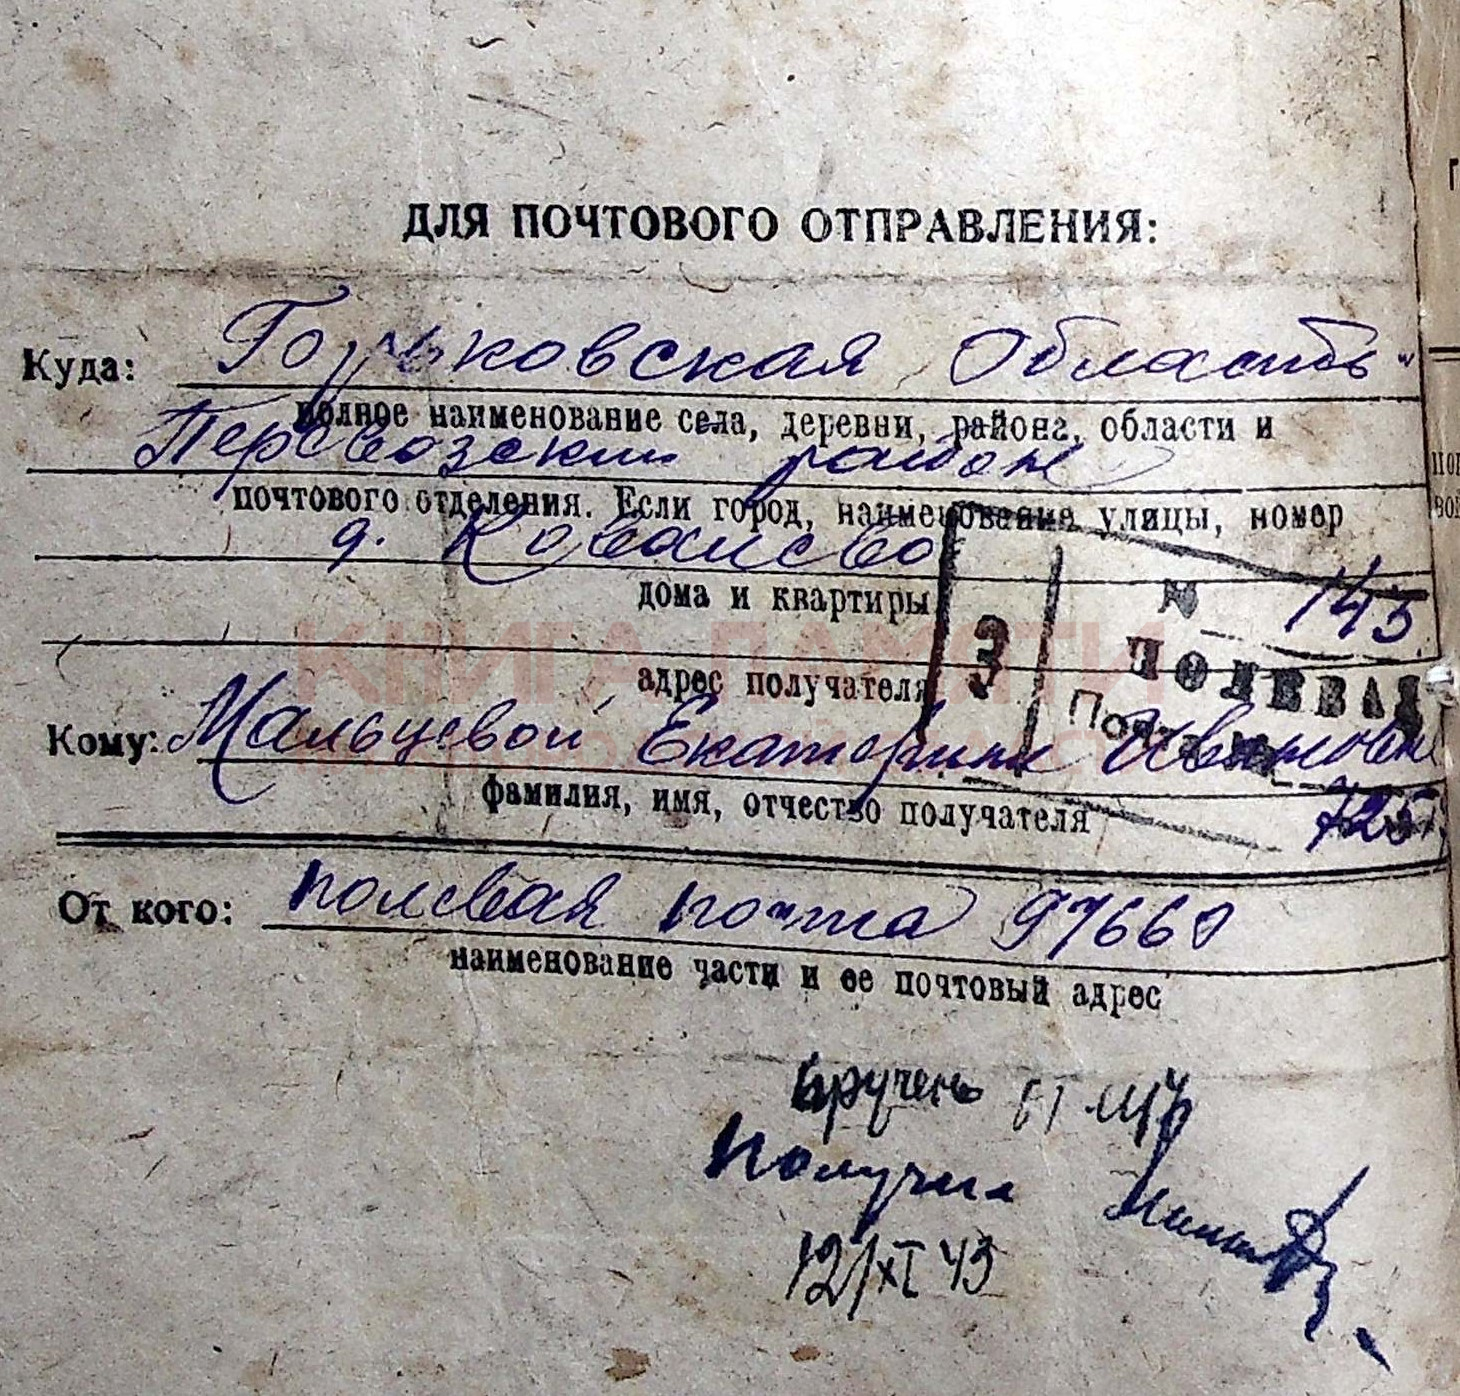 ДЛЯ ПОЧТОВОГО ОТПРАВЛЕНИЯ:
Куда: Горьковская Область
полное наименование села, деревни, района, области и
Перевозский район
почтового отделения. Если город, наименование улицы, номер
д. Ковалево
дома и квартиры
№ 145
3
ПОЛЕВАЯ
адрес получателя
КНИГА ПАМЯТИ
Кому: Мальцевой Екатерине Ивановне
фамилия, имя, отчество получателя
725
От кого: полевая почта 97660
наименование части и ее почтовый адрес
вручено
Получил
12/XI 43